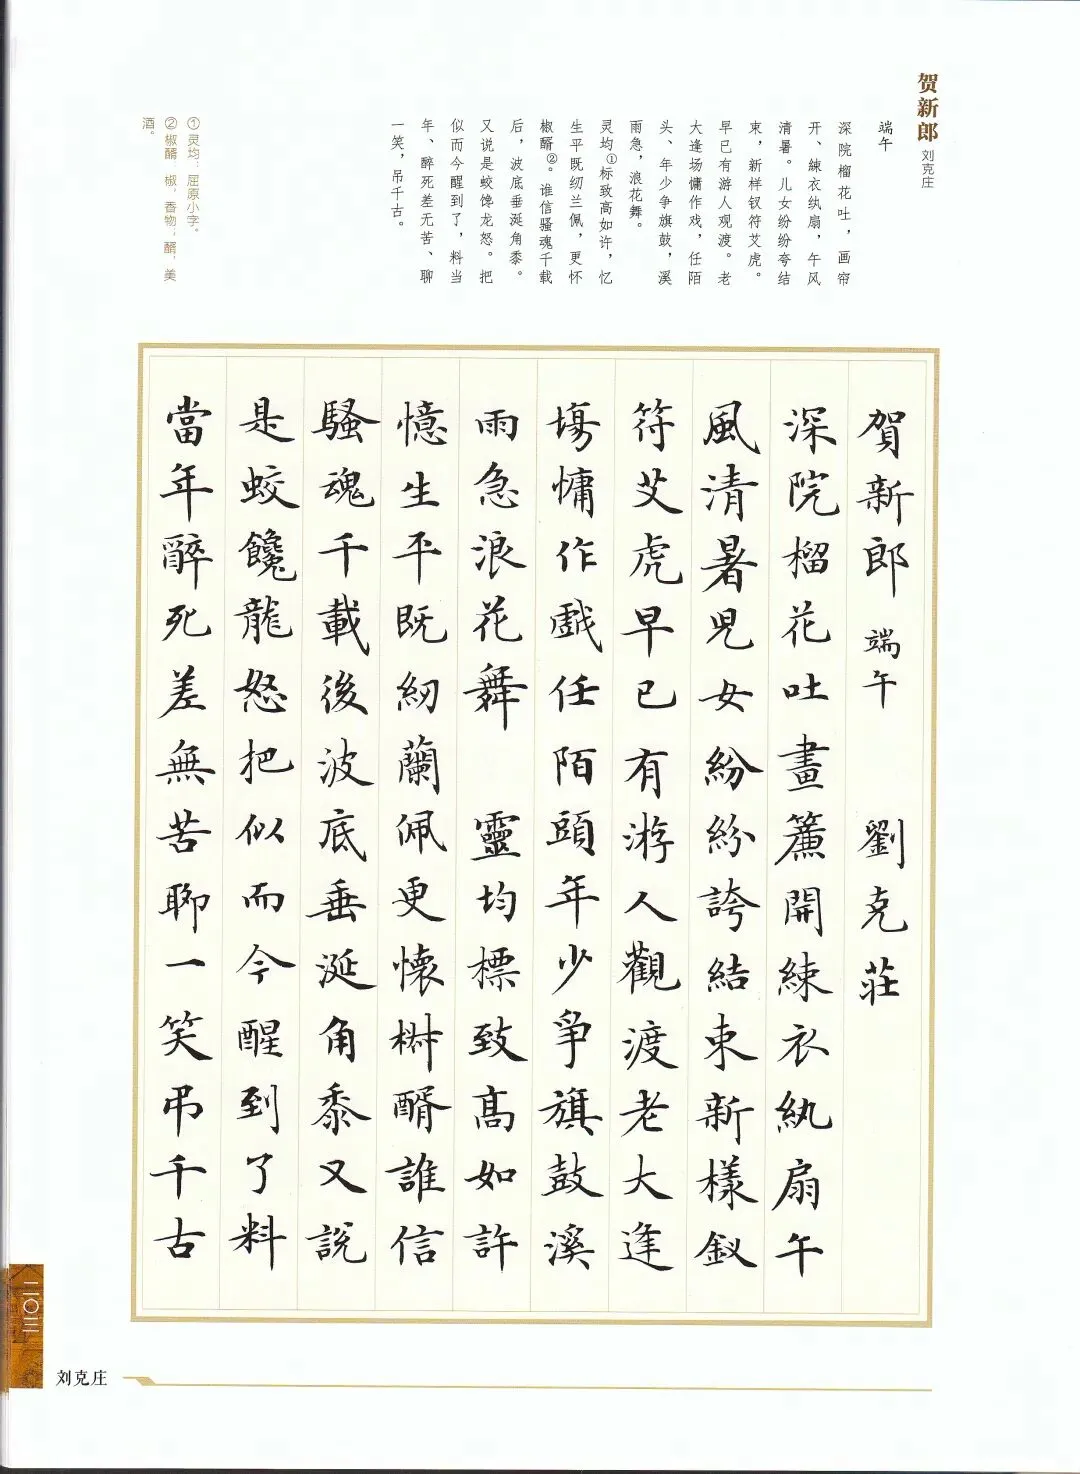 贺新郎 刘克庄
端午
深院榴花吐，画帘
开、綀衣纨扇，午风
清暑。儿女纷纷夸结
束，新样钗符艾虎。
早已有游人观渡。老
大逢场慵作戏，任陌
头、年少争旗鼓，溪
雨急，浪花舞。
灵均①标致高如许，忆
生平既纫兰佩，更怀
椒醑②。谁信骚魂千载
后，波底垂涎角黍。
又说是蛟馋龙怒。把
似而今醒到了，料当
年、醉死差无苦、聊
一笑，吊千古。
①灵均：屈原小字。
②椒醑：椒，香物；醑，美
酒。
賀新郎 端午 劉克莊
深院榴花吐畫簾開綀衣紈扇午
風清暑児女紛紛誇結束新樣釵
符艾虎早已有游人觀渡老大逢
場慵作戲任陌頭年少爭旗鼓溪
雨急浪花舞 靈均標致高如許
憶生平既紉蘭佩更懐椒醑誰信
騷魂千載後波底垂涎角黍又說
是蛟饞龍怒把似而今醒到了料
當年醉死差無苦聊一笑弔千古
二〇三
刘克庄